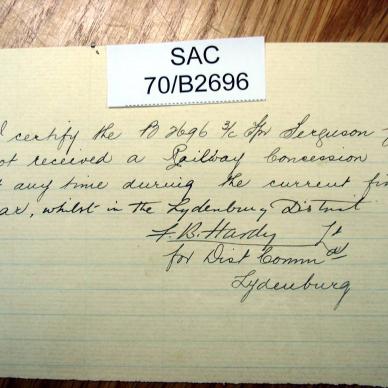 SAC
70/B2696
I certify the B 2696 3/c Tpr Ferguson
ot received a Railway Concession
t any time during the current fin
ar, whilst in the Lydenburg District
F. B. Hardy Lt
for Dist Commdt
Lydenburg